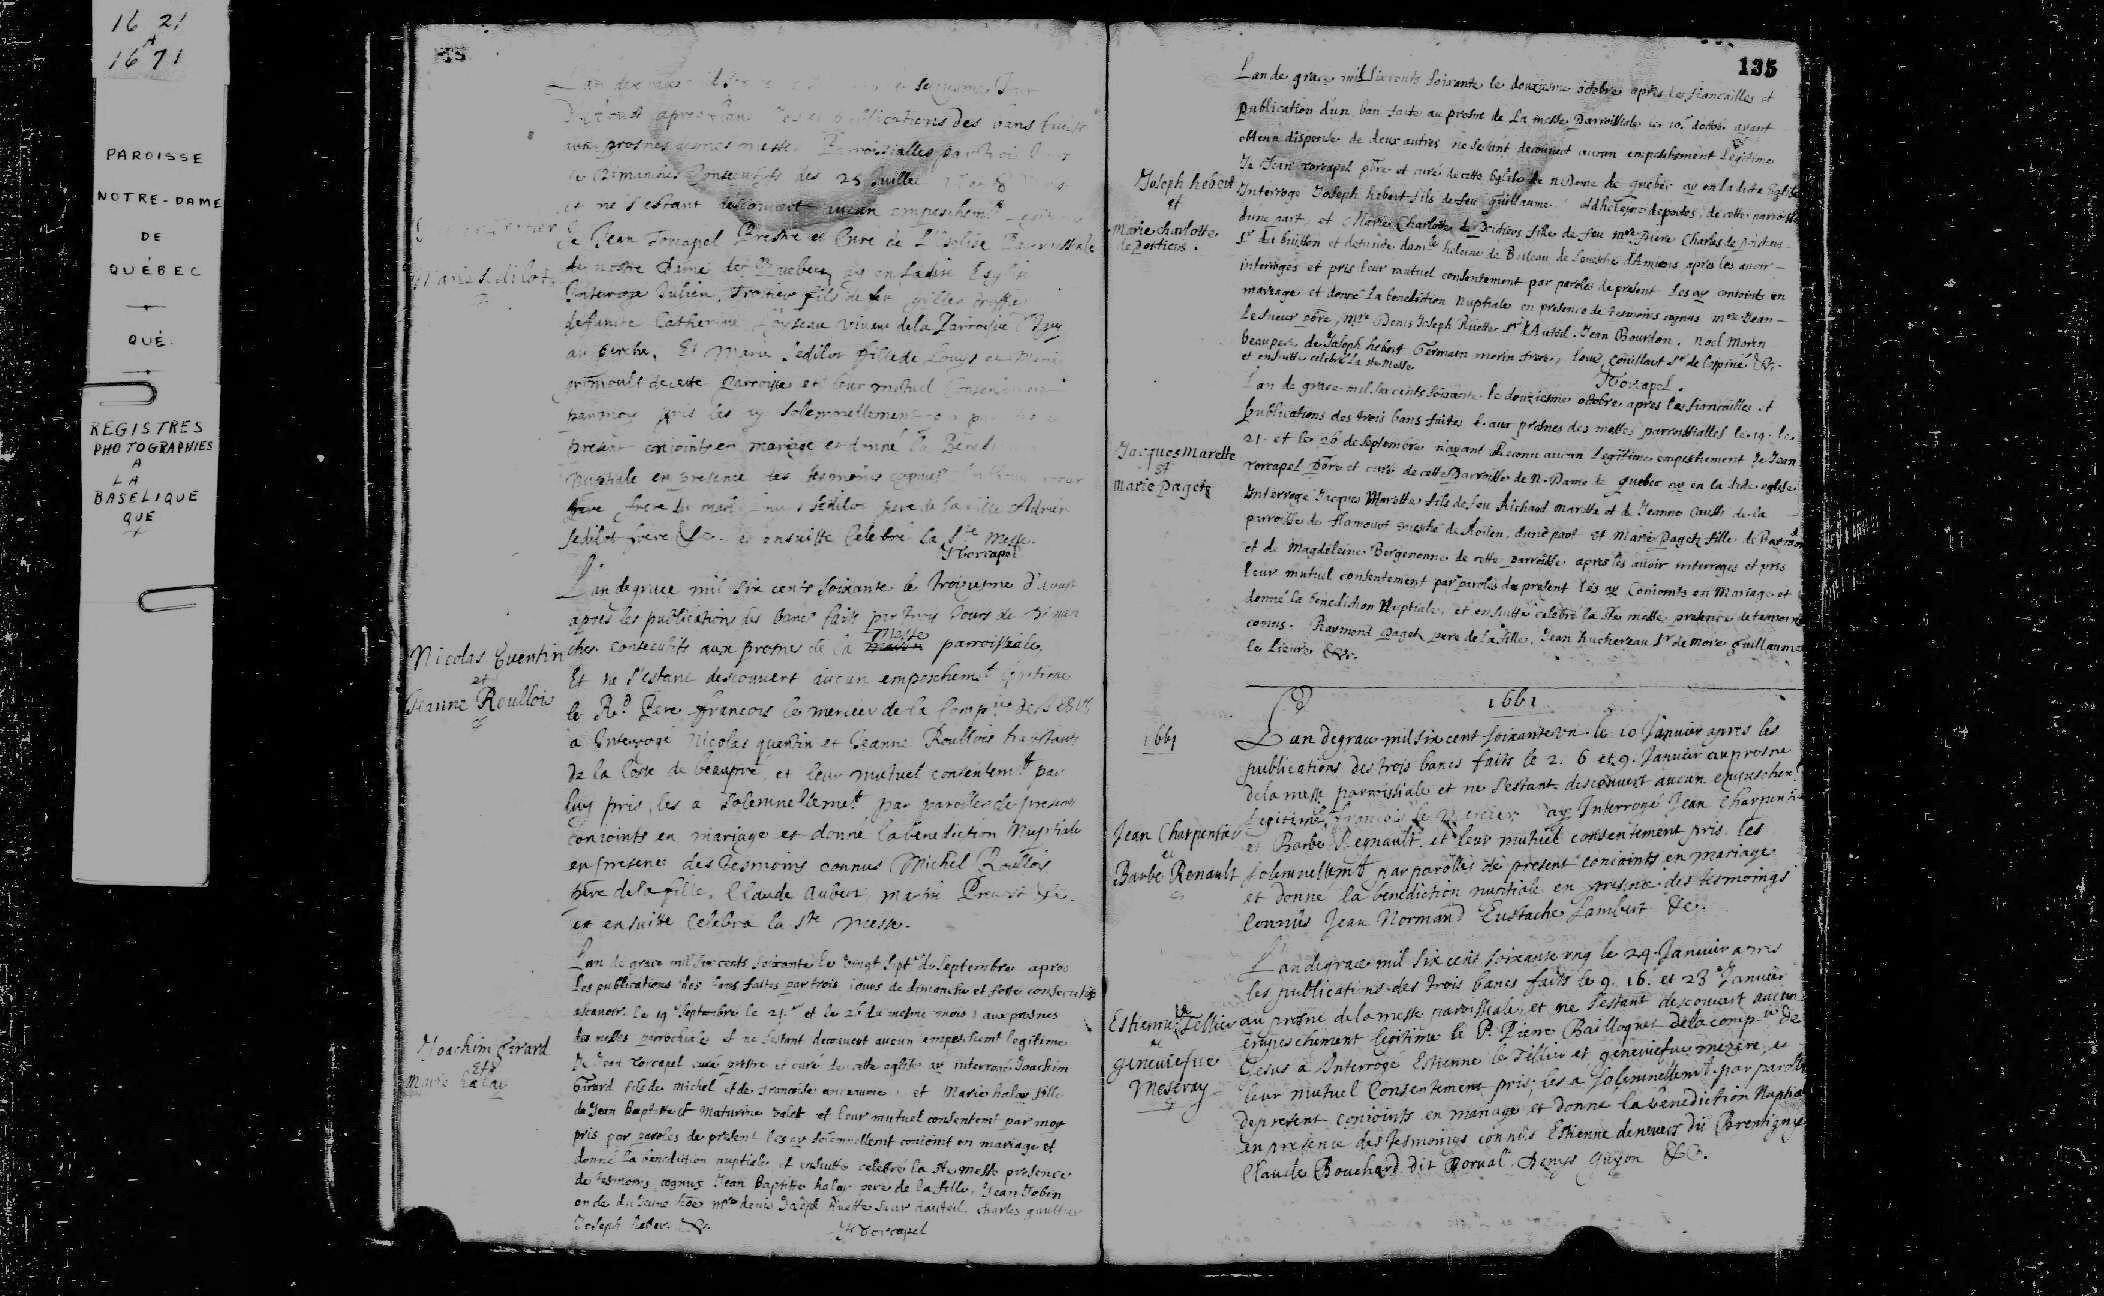 16 21
A
16 71
PAROISSE
NOTRE-DAME
DE
QUÉBEC
QUÉ.
REGISTRES
PHOTOGRAPHIES
A
LA
BASELIQUE
QUE
publications des bans
25 Juillet
et ne s'estant descouvert aucun empeschemt
Je Jean Torcapel Prestre et Curé de l'Eglise Parroissiale
de nostre Dame de Quebec, ay en ladite Eglise
Interrogé Julien Trotier fils de feu gilles et de
deffuncte Catherine Loyseau de la Parroisse
au perche, Et Marie Sedilot fille de Louys et de Marie
grimoult de cette Parroisse et leur mutuel Consentement
par moy pris les ay solemnellement
present conjoints en mariage et donné la Bened
Nuptiale en presence des tesmoins cognus
frere du mari Louis Sedilot pere de la fille Adrien
Sedilot frere &c. et ensuitte Celebré la Ste Messe.
Torcapel
Marie Sedilot
L'an de grace mil six cents soixante le troiziesme d'aoust
apres les publications des bancs faits par trois Jours de Diman
ches consecutifs aux prosnes de la messe parroissiale
Et ne s'estant descouvert aucun empeschemt legitime
le Rd Pere francois le mercier de la Compie de Jesus
a Interrogé Nicolas quentin et Jeanne Roullois habitants
de la Coste de beaupré, et leur mutuel consentemt par
luy pris, les a solemnellemt par parolles de present
conjoints en mariage et donné la benediction Nuptiale
en presence des tesmoins connus Michel Roullois
pere de la fille, Claude Aubert, Martin Prevost &c.
et ensuitte Celebra la Ste Messe.
Nicolas Quentin
et
Jeanne Roullois
L'an de grace mil six cents soixante le vingt septe de Septembre apres
les publications des bans faites par trois Jours de dimanche et feste consecutifs
ascavoir le 19e Septembre le 21e et le 26 du mesme mois aux prosnes
des messes parrochiale et ne s'estant decouvert aucun empeschemt legitime
Je Jean Torcapel prestre et curé de cette eglise ay interrogé Joachim
Girard fils de michel et de francoise et Marie halay fille
de Jean Baptiste et Mathurine valet et leur mutuel consentemt par moy
pris par paroles de present les ay solemnellemt conjoint en mariage et
donné la benediction nuptiale et ensuitte celebré la Ste messe presence
de tesmoins cognus Jean Baptiste halay pere de la fille, Jean Jobin
oncle du Jeune hoe mre denis Joseph Ruette sieur dauteuil, charles gaultier
Joseph hebert &c.
J Torcapel
Joachim Girard
Et
Marie halay
135
L'an de grace mil six cents soixante le douziesme octobre apres les fiancailles et
publication d'un ban faite au prosne de la messe Parroissiale le 10e doctob. ayant
obtenu dispense de deux autres ne s'estant decouvert aucun empeschement Legitime
Je Jean Torcapel pbre et curé de cette Eglise de n Dame de quebec ay en la dite Eglise
Interrogé Joseph hebert fils de feu guillaume et d'helene deportes, de cette parroisse
dune part, et Marie Charlotte de Poitiers fille de feu mre Pierre Charles de poitiers
Sr du buisson et defunte damle heleine de Belleau de l'evesché d'Amiens apres les avoir
interroges et pris leur mutuel consentement par paroles de present les ay conjoints en
mariage et donné la benediction nuptiale en presence de tesmoins cognus mre Jean
Lesueur pbre, mre Denis Joseph Ruette Sr d'Auteuil, Jean Bourdon, noel Morin
beaupere de Joseph hebert Germain morin frere, louis Couillart Sr de lespiné &c.
et ensuitte celebré la ste Messe
Torcapel.
Joseph hebert
et
Marie charlotte
de Poitiers.
L'an de grace mil six cents soixante le douziesme octobre apres les fiancailles et
publications des trois bans faites aux prosnes des messes parroissialles le 19. le
21. et le 26 de septembre n'ayant Reconu aucun Legitime empeschement Je Jean
Torcapel pbre et curé de cette Parroisse de N. Dame de quebec ay en la dite eglise
Interrogé Jacques Marette fils de feu Richard marette et de Jeanne de la
parroisse de evesché de Roüen, d'une part et Marie Paget fille de Raymond
et de Magdeleine Bergeronne de cette parroisse apres les avoir interroges et pris
leur mutuel consentement par paroles de present les ay Conjoints en Mariage et
donné la benediction Nuptiale, et ensuitte celebré la Ste messe presence de temoins
conus. Raymond Paget pere de la fille, Jean Juchereau Sr de More guillaume
le lievre &c.
Jacques Marette
et
Marie Paget
1661
1661
L'an de grace mil six cent soixante un le 10 Janvier apres les
publications des trois bancs faits le 2. 6 et 9. Janvier au prosne
de la messe parroissiale et ne s'estant descouvert aucun empeschemt
Legitime francois le Mercier ay Interrogé Jean Charpentier
et Barbe Regnault et leur mutuel consentement pris les
solemnellemt par parolles de present conjoints en mariage
et donne la benediction nuptiale en presence des tesmoings
connus Jean Normand Eustache Lambert &c.
Jean Charpentier
et
Barbe Renault
L'an de grace mil six cent soixante ung le 24 Janvier apres
les publications des trois bancs faits le 9. 16. et 23e Janvier
au prosne de la messe parroissiale, et ne s'estant descouvert aucun
empeschement legitime le P. Pierre Bailloquet de la compie de
Jesus a Interrogé Estienne le Tellier et genevieſve mezeré, et
leur mutuel Consentement pris, les a solemnellemt par parolles
de present conjoints en mariage et donne la benediction Nuptiale
en presence des tesmoings connus Estienne denevers dit Brentigny
Claude Bouchard dit Dorval Denys Guyon &c.
Estienne le Tellier
et
genevieſve
Meseray